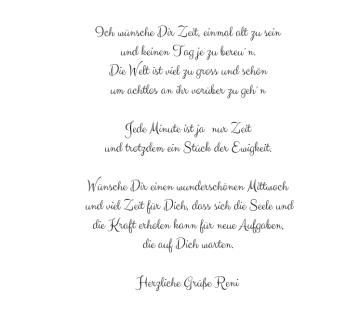 Ich wünsche Dir Zeit, einmal alt zu sein
und keinen Tag je zu bereu´n.
Die Welt ist viel zu gross und schön
um achtlos an ihr vorüber zu geh´n
Jede Minute ist ja nur Zeit
und trotzdem ein Stück der Ewigkeit.
Wünsche Dir einen wunderschönen Mittwoch
und viel Zeit für Dich, dass sich die Seele und
die Kraft erholen kann für neue Aufgaben,
die auf Dich warten.
Herzliche Grüße Reni